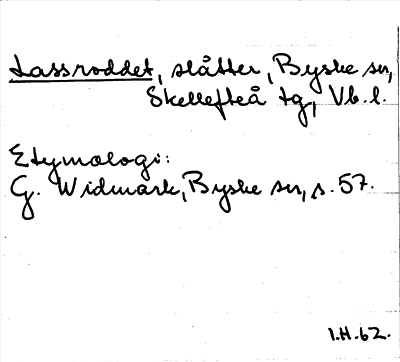 Lassroddet, slåtter, Byske sn,
Skellefteå tg, Vb.l.
Etymologi:
G. Widmark, Byske sn, s. 57.
I.H.62.